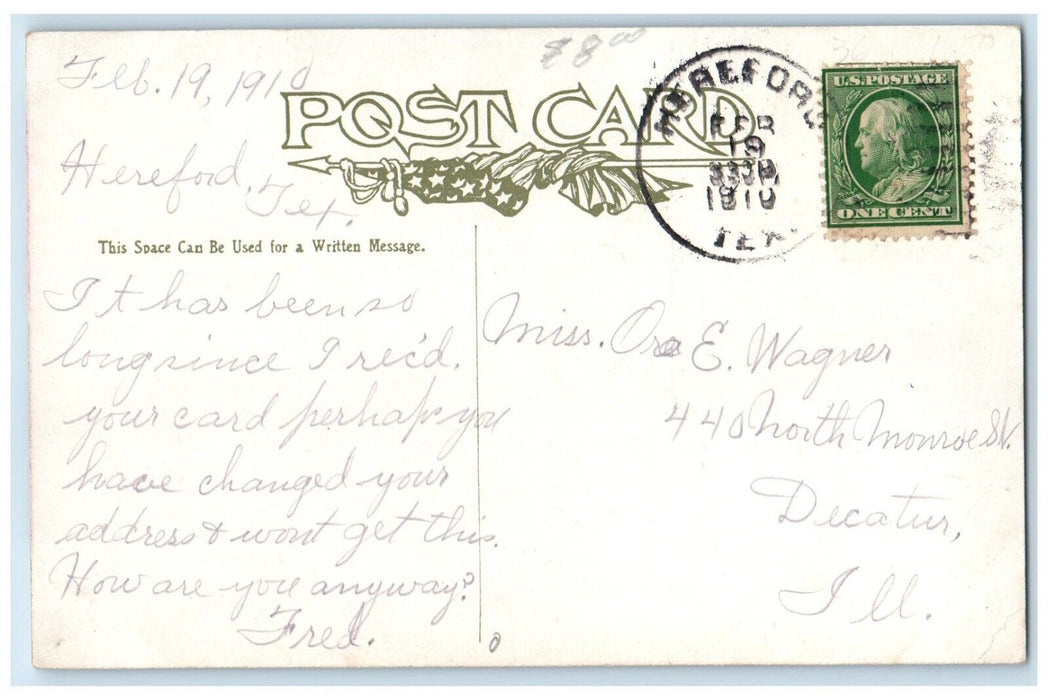 $8.00
Feb. 19, 1910
POST CARD
Hereford, Tex.
HEREFORD
FEB
19
1910
TEX.
U.S. POSTAGE
ONE CENT
This Space Can Be Used for a Written Message.
It has been so
long since I rec'd.
your card perhaps you
have changed your
address & wont get this.
How are you anyway?
Fred.
Miss. Ora E. Wagner
440 North Monroe St.
Decatur,
Ill.